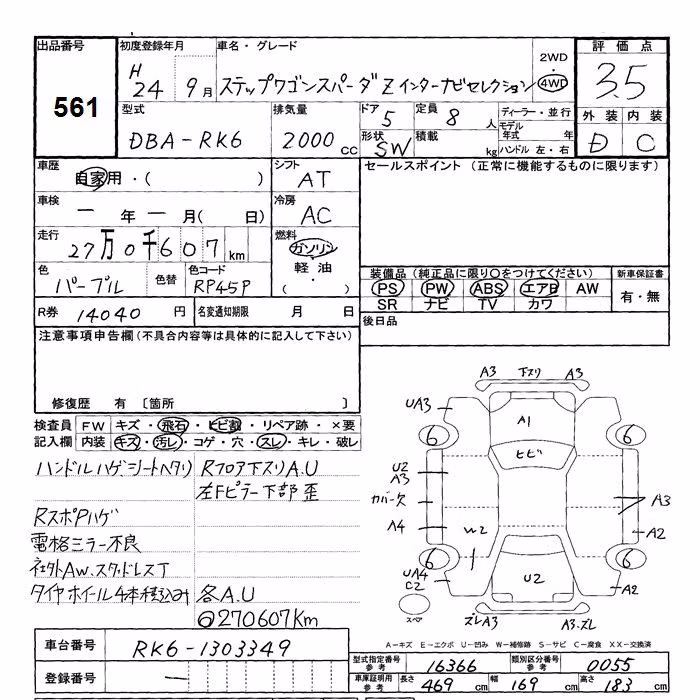 出品番号 初度登録年月 車名・グレード 2WD 評価点
561 H 24 9月 ステップワゴンスパーダ Zインターナビセレクション 4WD 3.5
型式 排気量 ドア 5 定員 8 人 ディーラー・並行 外装 内装
DBA-RK6 2000 cc 形状 SW 積載 kg モデル年式 年 ハンドル 左・右 D C
車歴 自家用・( ) シフト AT セールスポイント (正常に機能するものに限ります)
車検 一年一月( 日) 冷房 AC
走行 27万0千607km 燃料 ガソリン・軽油・( )
色 パープル 色替 色コード RP45P 装備品(純正品に限り○をつけてください) 新車保証書
PS PW ABS エアB AW 有・無
SR ナビ TV カワ
R券 14040円 名変通知期限 月 日 後日品
注意事項申告欄(不具合内容等は具体的に記入して下さい)
修復歴 有 〔箇所 〕
検査員 FW キズ・飛石・ヒビ割・リペア跡・×要
記入欄 内装 キズ・汚レ・コゲ・穴・スレ・キレ・破レ
ハンドルハゲ、シートヘタリ Rフロア下スリA.U
左Fピラー下部歪
RスポPハゲ
電格ミラー不良
社外AW、スタッドレスT
タイヤホイール4本積込み 各A.U
270607Km
A3 下スリ A3
UA3 A1
6 6
ヒビ
U2
A3
カバー欠 A3
A4 W2 A2
6 6
UA4
C2 U2 A2
スペア ズレA3 A3.ズレ
A-キズ E-エクボ U-凹み W-補修跡 S-サビ C-腐食 XX-交換済
車台番号 RK6-1303349
型式指定番号 参考 16366 類別区分番号 参考 0055
登録番号 一
車庫証明用 参考 長さ 469 cm 幅 169 cm 高さ 183 cm